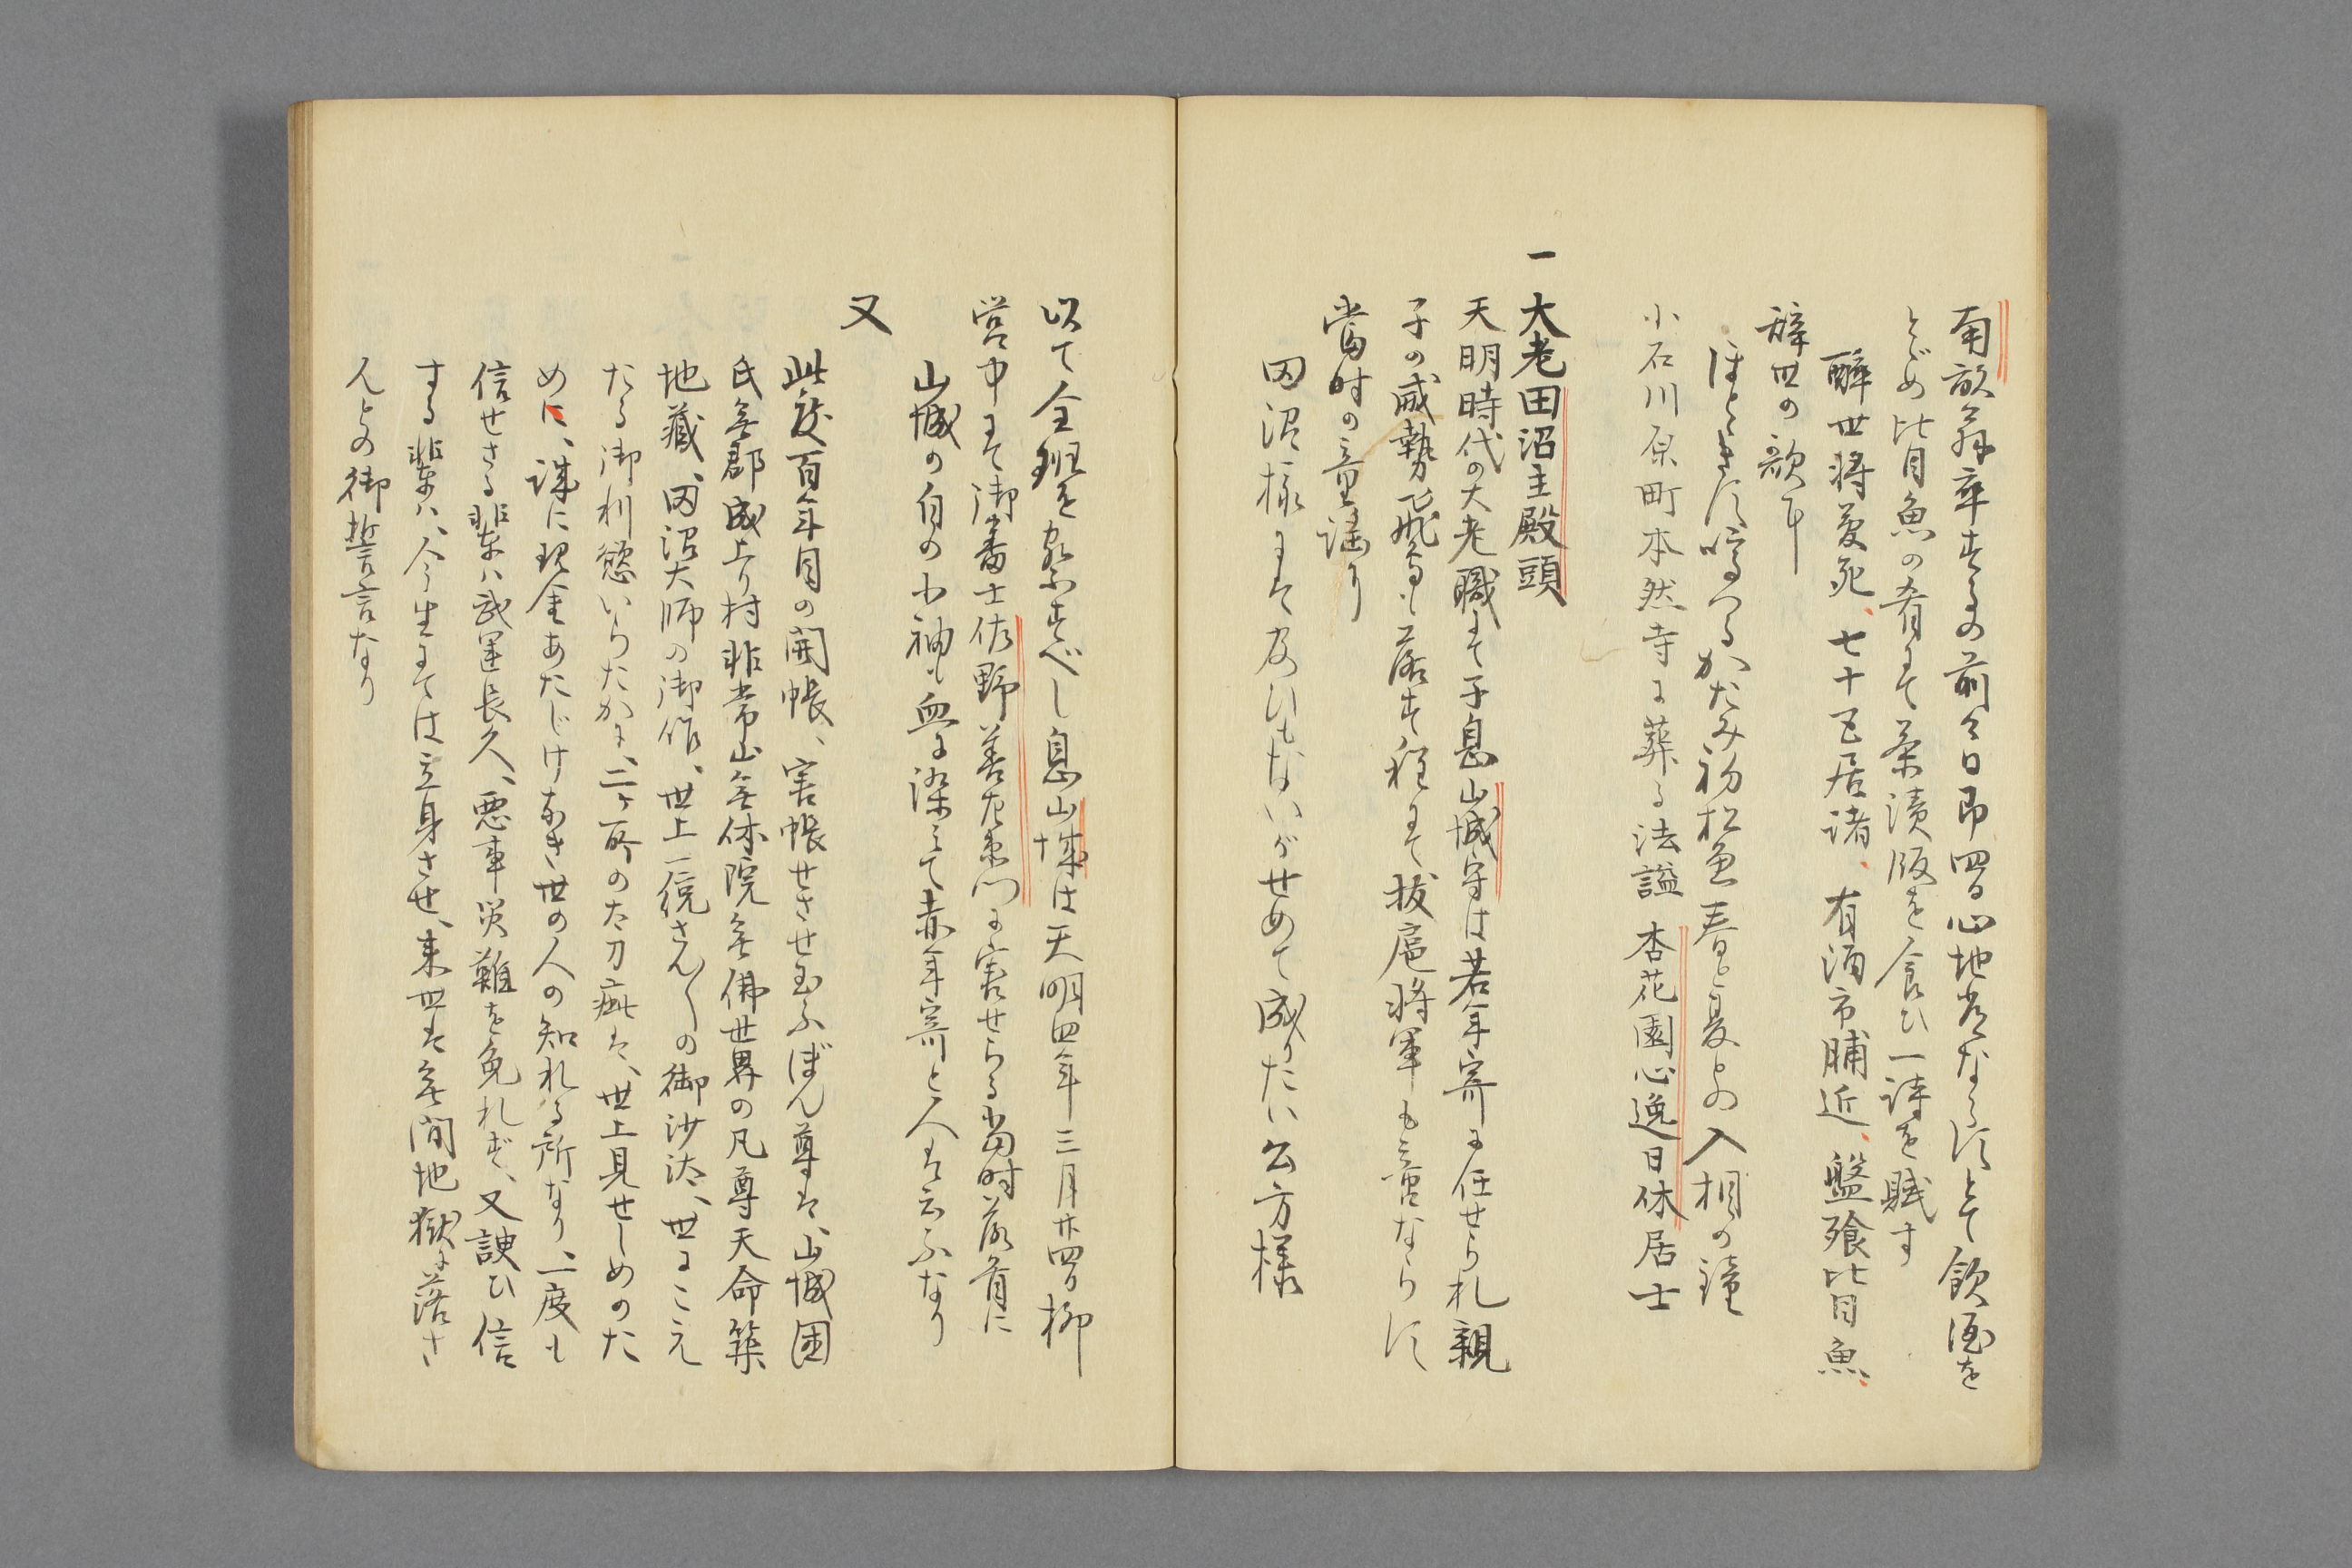 南畝翁卒するの前々日即四日心地常ならずとて飲酒を
とゞめ比目魚の肴にて茶漬飯を食ひ一詩を賦す
酔世将夢死、七十五居諸、有酒市脯近、盤飱比目魚、
辞世の歌に
ほとゝぎす鳴つるかたみ初松魚春と夏との入相の鐘
小石川原町本然寺に葬る法謚 杏花園心逸日休居士
一 大老田沼主殿頭
天明時代の大老職にて子息山城守は若年寄に任せられ親
子の威勢飛鳥も落す程にて扱扈将軍も啻ならず
當时の童謡に
田沼様には及ひもないがせめて成りたい公方様
以て全班を察すべし息山城は天明四年三月廿四日柳
営中にて御番士佐野善左衛門に害せらる當时落首に
山城の白の小袖も血に染みて赤年寄と人は云ふなり
又
此度百年目の開帳、害帳せさせ玉ふぼん尊は、山城国
氏無郡成上り村非常山無休院無佛世界の凡尊天命築
地藏、田沼大师の御作、世上一統さん〱の御沙汰、世にこえ
たる御利慾いらたかに、二ヶ所の太刀疵は、世上見せしめのた
めに、誅に現金あたじけなき世の人の知れる所なり、一度も
信せさる輩は武運長久、悪事災難を免れず、又諛ひ信
する輩は、今生にては立身させ、来世は無間地獄に落さ
んとの御誓言なり